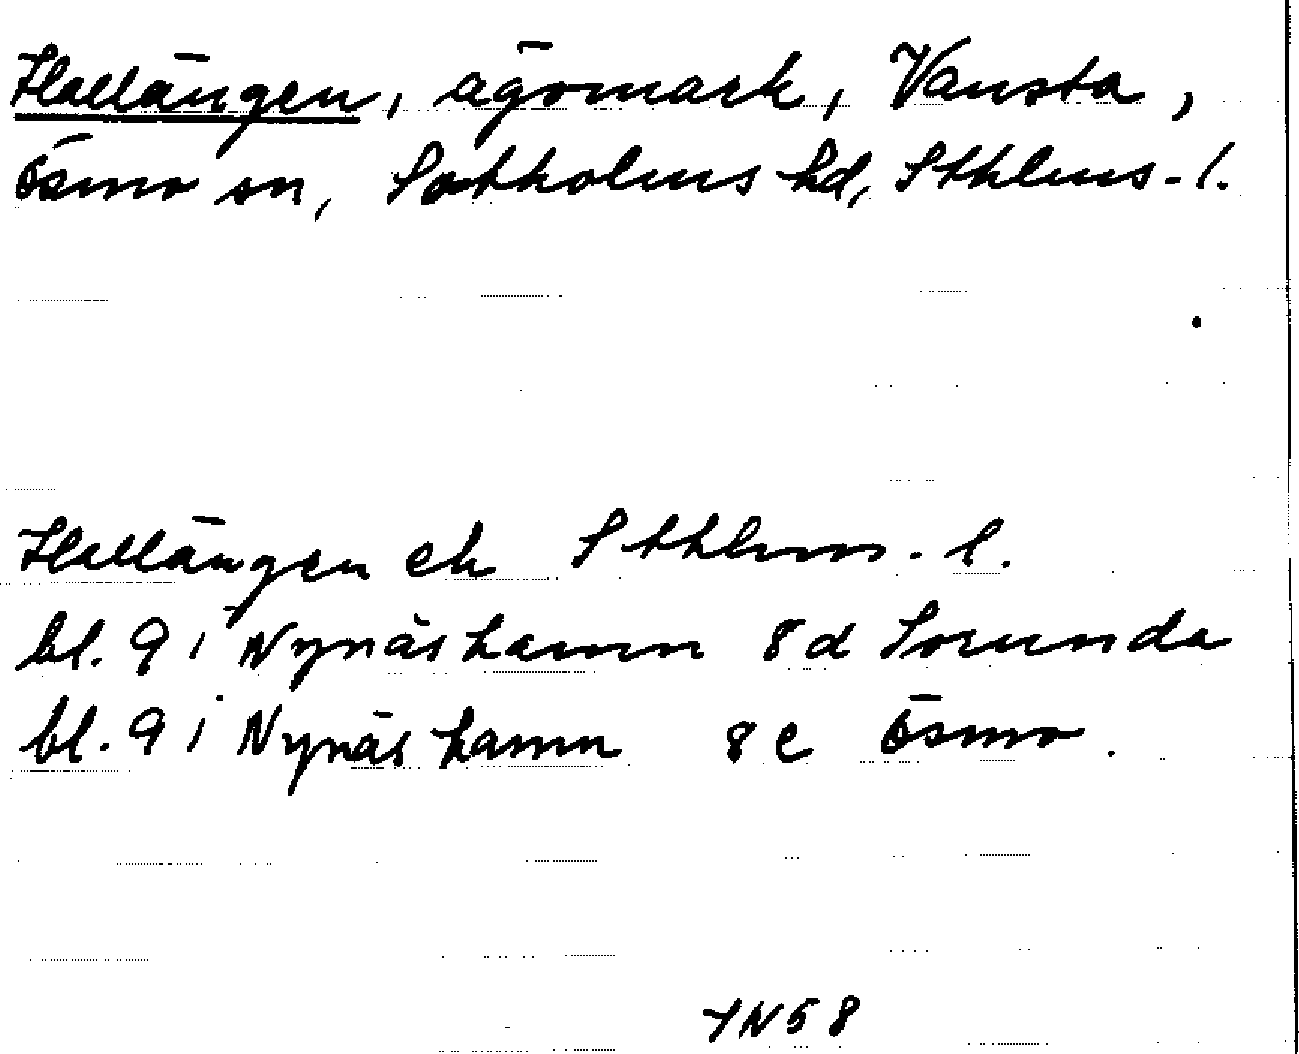 Hallängen, ägomark, Vansta,
Ösmo sn, Sotholms hd, Sthlms-l.
Hallängen ek Sthlms-l.
bl. 9 i Nynäshamn 8d Sorunda
bl. 9 i Nynäshamn 8e Ösmo.
YN58